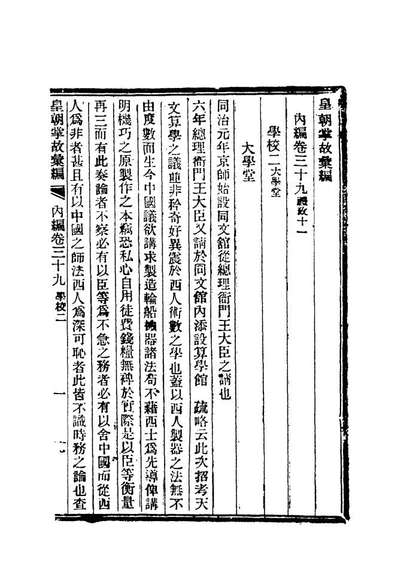 皇朝掌故彙編
內編卷三十九禮政十一
學校二大學堂
大學堂
同治元年京師始設同文館從總理衙門王大臣之請也
六年總理衙門王大臣又請於同文館內添設算學館 疏略云此次招考天
文算學之議並非矜奇好異震於西人術數之學也蓋以西人製器之法無不
由度數而生今中國議欲講求製造輪船機器諸法苟不藉西士為先導俾講
明機巧之原製作之本竊恐私心自用徒費錢糧無裨於實際是以臣等衡量
再三而有此奏論者不察必有以臣等為不急之務者必有以舍中國而從西
人為非者甚且有以中國之師法西人為深可恥者此皆不識時務之論也查
皇朝掌故彙編 內編卷三十九 學校二 一